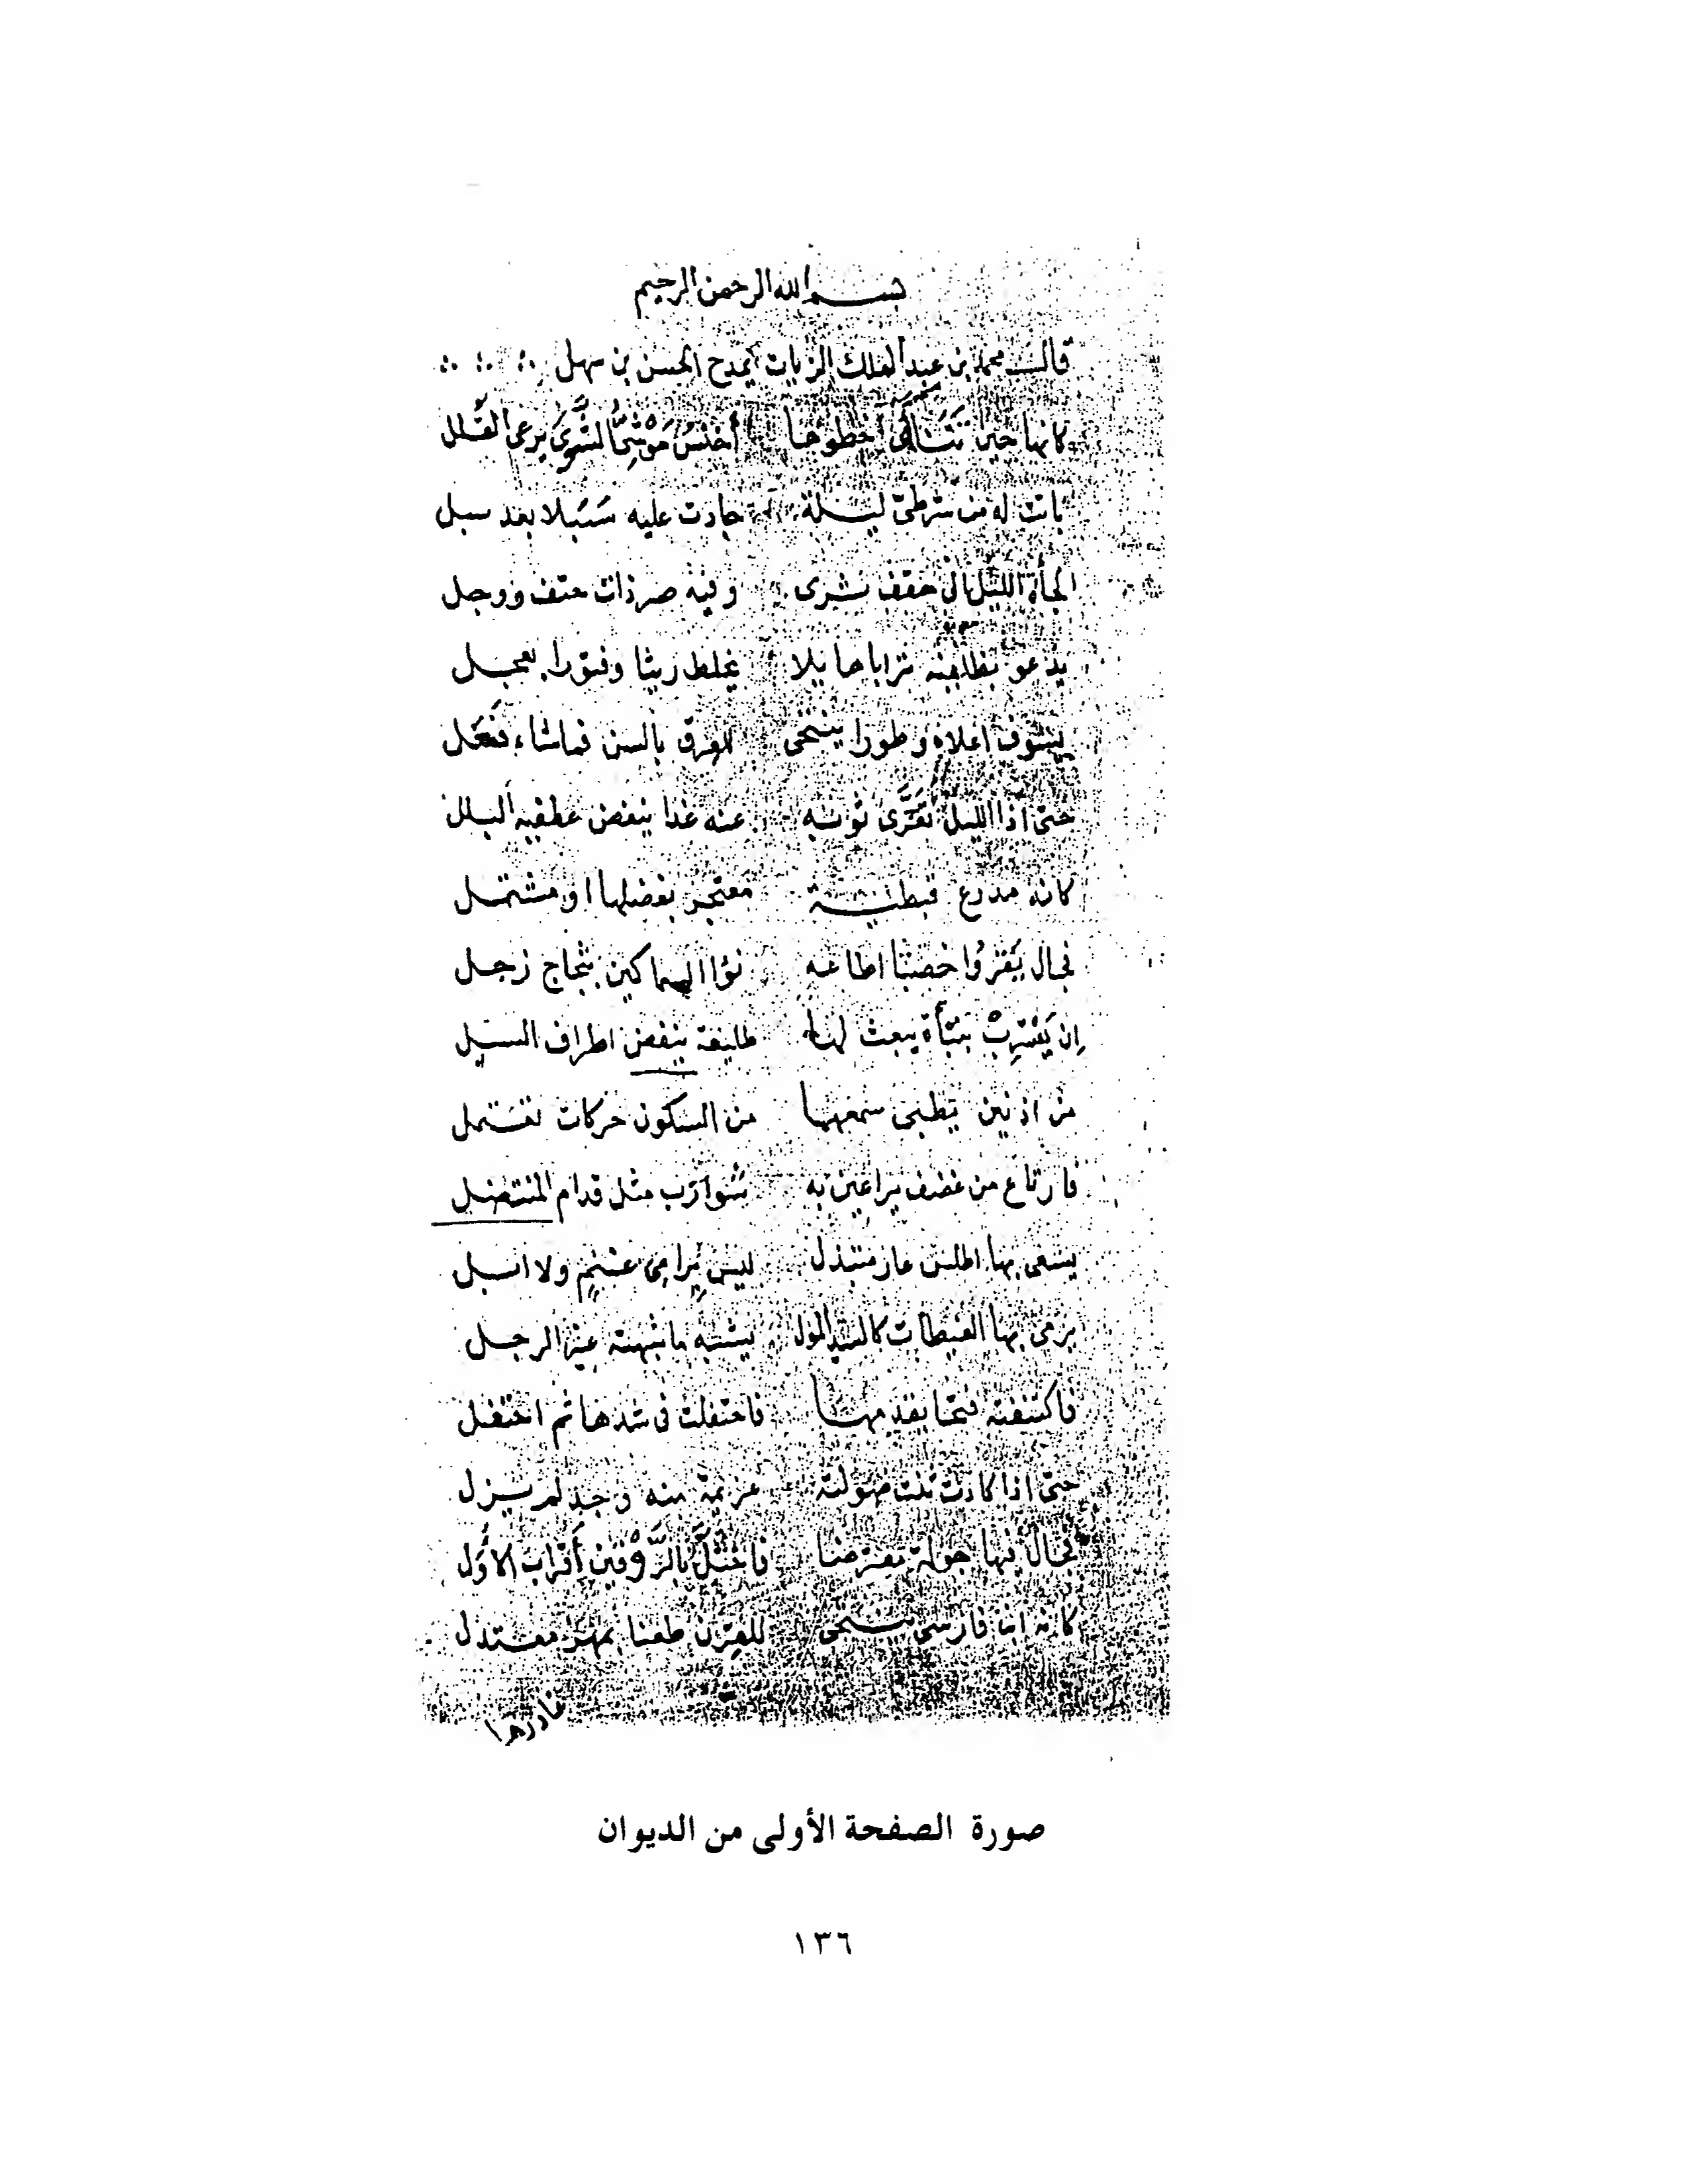 بسم الله الرحمن الرحيم
قال محمد بن عبد الملك الزيات يمدح الحسن بن سهل
كانها حين تناءى خطوها أخنس موشى الشوى يرعى القلل
باتت له من شرطى ليلة جادت عليه سبلا بعد سبل
الجأه الليل الى حقف وفيه صرذات حتف ووجل
يدعو بظلفيه ترابا هايلا يخلط ريثا وفتورا بعجل
يشوف اعلاه وطورا ينتحى للعرق بالسن فما شاء فعل
حتى اذا الليل تفرى ثوبه عنه غدا ينفض عطفيه البلل
كانه مدرع قبطية معتجر بفضلها او مشتمل
فجال يقروا خصبا اطاعه نوا السماكين بثجاج زجل
ان يقترب نبأة يبعث لها طليعة ينفض اطراف السبل
من اذنين يطبى سمعهما من السكون حركات تفتمل
فارتاع من غضف يراعين به شوازب مثل قدام المنتضل
يسعى بها اطلس عار مبتذل ليس يرامى عشم ولا انسل
يرمى بها الغيطات كالسيد يشبه ما شبهته غير الرجل
فاكتنفته فتحا بقدمها فاحتفلت فى شدها ثم احتفل
حتى اذا كادت ثنت صولته عزيمة منه وجد لم يزل
فجال فيها جولة معترضا بالروقين أقراب الأول
كانه اذا فارسى ينتحى للقرن طعنا بمهز معتدل
غادرها
صورة الصفحة الأولى من الديوان
١٣٦